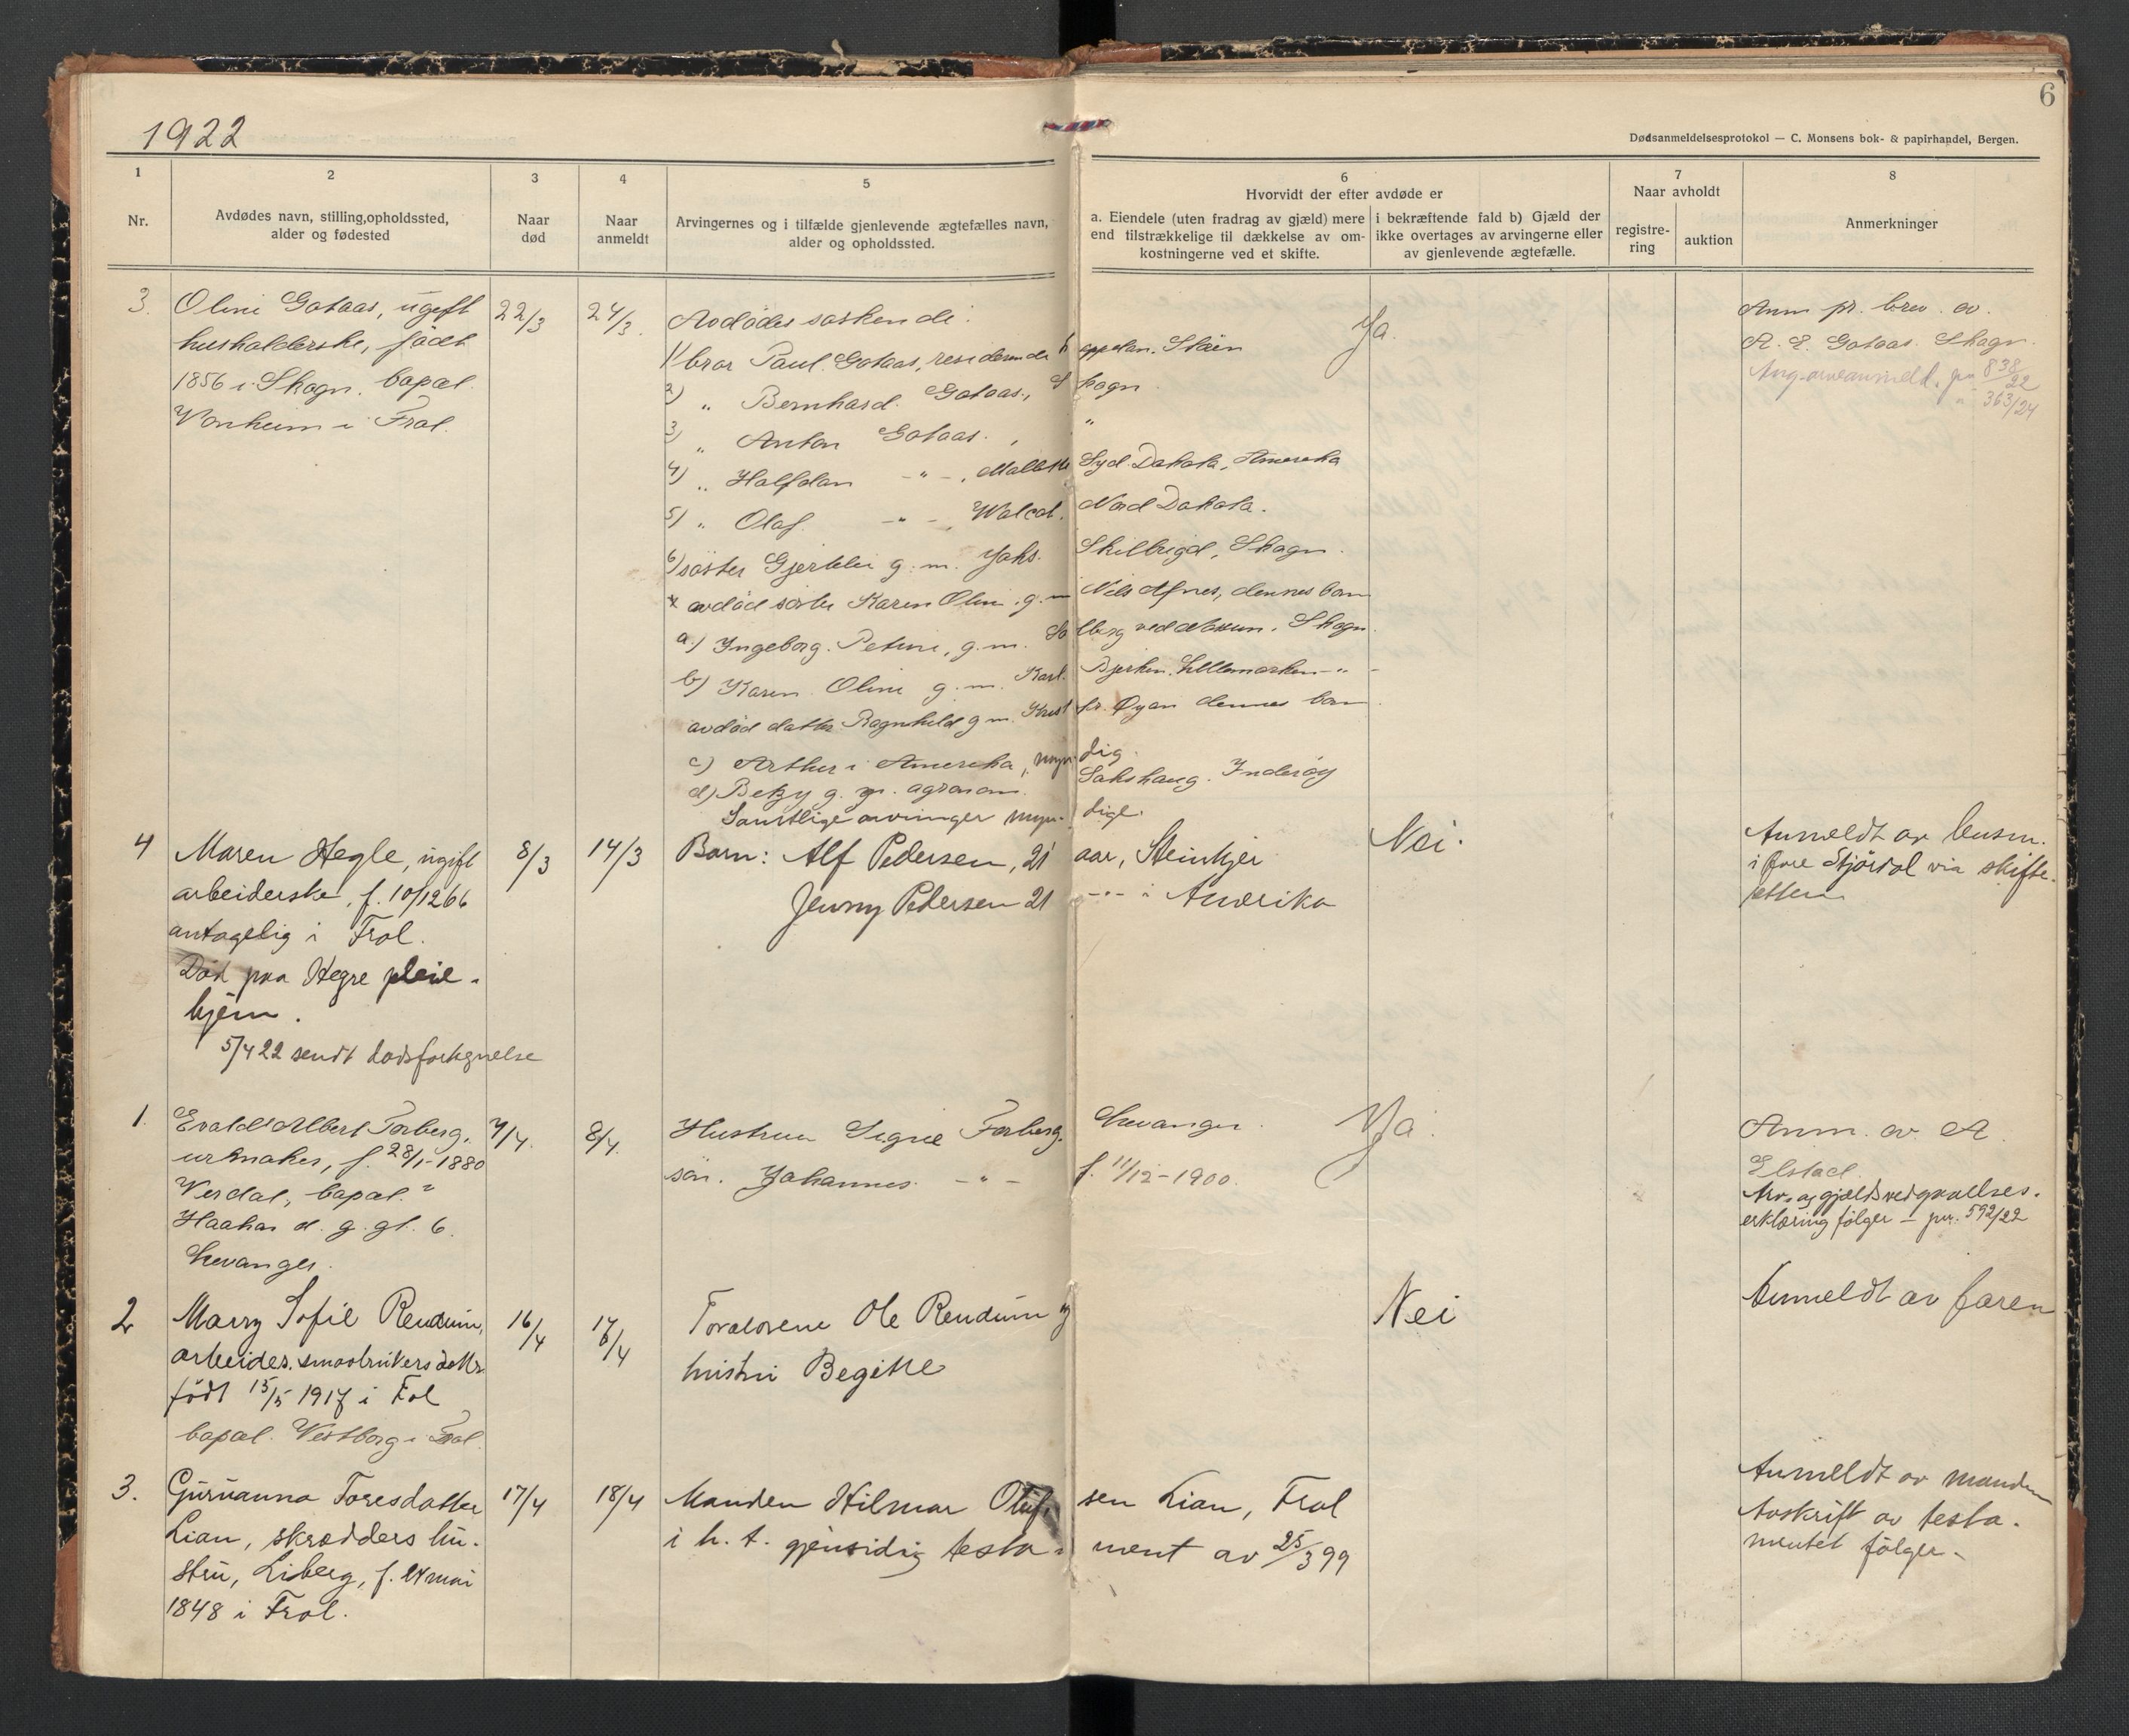 6
1922
Dødsanmeldelsesprotokol — C. Monsens bok- & papirhandel, Bergen.
1
Nr.
2
Avdødes navn, stilling, opholdssted,
alder og fødested
3
Naar
død
4
Naar
anmeldt
5
Arvingernes og i tilfælde gjenlevende ægtefælles navn,
alder og opholdssted.
6
Hvorvidt der efter avdøde er
a. Eiendele (uten fradrag av gjæld) mere
end tilstrækkelige til dækkelse av om-
kostningerne ved et skifte.
i bekræftende fald b) Gjæld der
ikke overtages av arvingerne eller
av gjenlevende ægtefælle.
7
Naar avholdt
registre-
ring
auktion
8
Anmerkninger
3.
Oline Gotaas, ugift
husholderske, født
1856 i Skogn. bopæl
Vonheim i Frol.
22/3
24/3.
Avdødes søskende:
1) bror Paul Gotaas, residerende kappelan, Støren
2) " Bernhard Gotaas, Skogn
3) " Anton Gotaas, "
4) " Halfdan - " - , Syd Dakota, Amerika
5) " Olaf - " - , Walcot, Nord Dakota.
6) søster Gjertine g. m. Johs. Skilbrigd, Skogn.
x avdød søster Karen Oline g. m Nils dennes barn
a.) Ingeborg Petrine, g. m. Solberg ved Skogn.
b) Karen Oline g. m. Karl Bjerken, - " -
avdød datter Ragnhild g m. Øyan dennes barn
c) Arthur i Amerika, myndig.
d) Betzy g. m. agronom Sakshaug. Inderøy
Samtlige arvinger myndige.
Ja.
Anm pr. brev av
A. E. Gotaas Skogn.
Ang. arveanmeld. 838/22
" 363/24
4
Maren Hegle, ugift
arbeiderske, f. 10/12 66
antagelig i Frol.
Død paa Hegre pleie-
hjem.
5/4 22 sendt dødsfortegnelse
8/3
14/3
Barn: Alf Pedersen, 21 aar, Steinkjer
Jenny Pedersen 21 - " - i Amerika
Nei.
Anmeldt av lensm.
i Øvre Stjørdal via skifte-
retten
1.
Evald Albert Forberg,
urmaker, f. 28/1-1880
Verdal, bopæl
Haakon d. g. gt. 6.
Levanger.
7/4.
8/4.
Hustrun Signe Forberg. Levanger.
søn. Johannes - " - f. 11/12-1900.
Ja.
Anm. av A
Elstad
Arv- og gjældsvedgaaelses-
erklæring følger - 592/22
2
Marry Sofie Rendum,
arbeider. smaabrukers datter
født 15/5 1917 i Fol
bopæl. Vestborg i Frol.
16/4
17/4
Forældrene Ole Rendum og
hustru Begitte
Nei
Anmeldt av faren
3.
Guruanna Toresdatter
Lian, skrædders hu-
stru, Liberg, f. 24 mai
1848 i Frol.
17/4
18/4
Manden Hilmar Olufsen Lian, Frol
i h. t. gjensidig testament av 25/3 99
Anmeldt av manden
Avskrift av testa-
mentet følger-